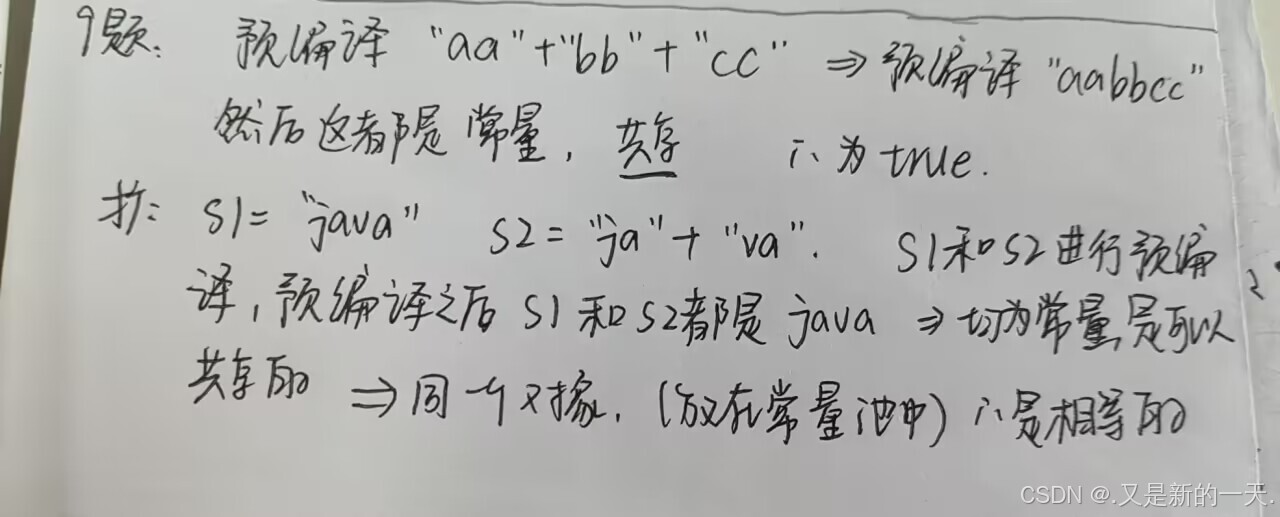 9题: 预编译 "aa"+"bb"+"cc" ⇒ 预编译 "aabbcc"
然后这都是常量, 共存 ∴ 为 true.
扩: S1= "java" S2= "ja"+ "va". S1和S2进行预编
译, 预编译之后 S1 和 S2都是 java ⇒ 均为常量,是可以
共存的 ⇒ 同一个对象. (放在常量池中) ∴是相等的
CSDN @.又是新的一天.